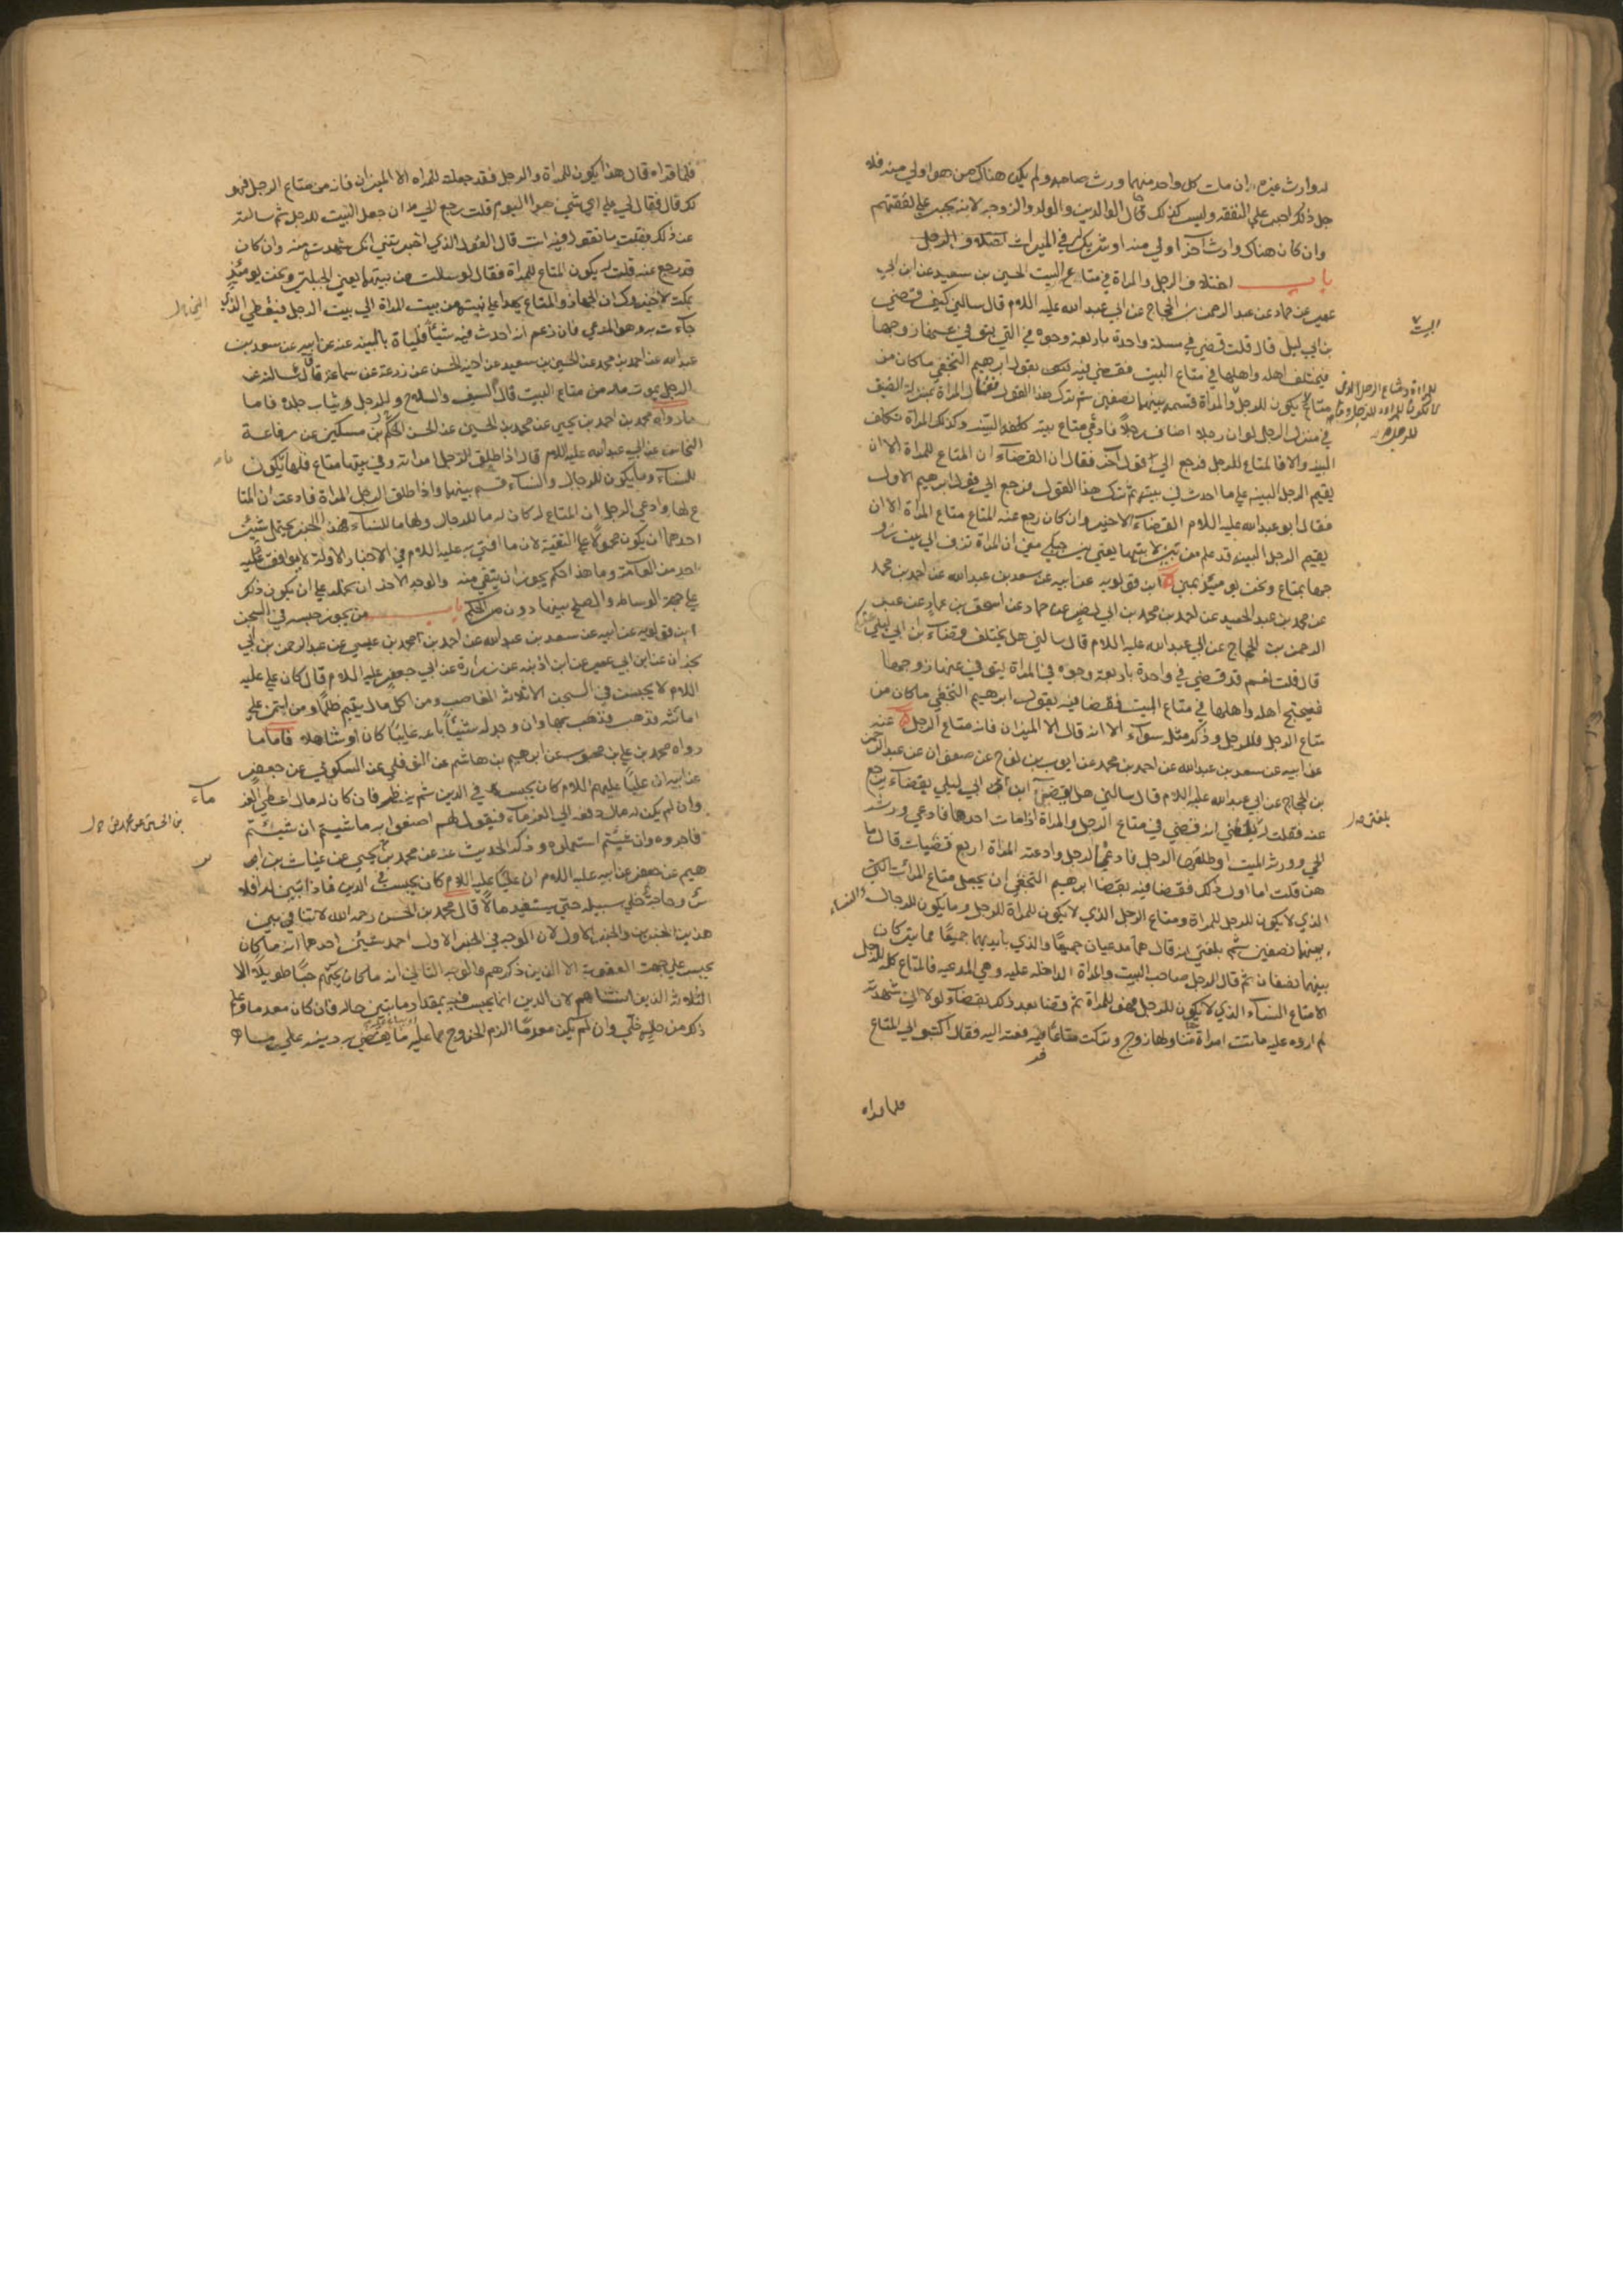 له وارث غيره ان مات كل واحد منهما ورث صاحبه ولم يكن هناك من هو اولي منه فلا
جل ذلك اجبر علي النفقه وليس كذلك قال الوالدين والولد والزوجه لانه يجبر علي نفقتهم
وان كان هناك وارث آخر اولي منه او شريك له في الميراث
باب اختلاف الرجل والمراة في متاع البيت الحسين بن سعيد عن ابن ابي
عمير عن حماد عن عبد الرحمن بن الحجاج عن ابي عبد الله عليه اللام قال سالني كيف قضي
بن ابي ليلي قال قلت قضي في مسئلة واحدة باربعة وجوه في التي يتوفي عنها زوجها
فيختلف اهله واهلها في متاع البيت فقضي فيه بقول ابرهيم النخعي ما كان من
متاع يكون للرجل والمراة قسمه بينهما نصفين ثم ترك هذا القول فقال المراة بمنزلة الضيف
في منزل الرجل لو ان رجلا اضاف رجلاً فادعي متاع بيته كلفه البينه وكذلك المراة تكلف
البينه والا فالمتاع للرجل فرجع الي قول آخر فقال ان القضاء ان المتاع للمراة الا ان
يقيم الرجل البينه علي ما احدث في بيته ثم ترك هذا القول فرجع الي قول ابرهيم الاول
فقال ابو عبد الله عليه اللام القضاء الاخير وان كان رجع عنه المتاع متاع المراة الا ان
يقيم الرجل البينه قد علم من بين لابتيها يعني بين جبلي مني ان المراة تزف الي بيت زو
جها بمتاع ونحن يومئذ بمني ابن قولويه عن ابيه عن سعد بن عبد الله عن احمد بن محمد
عن محمد بن عبد الحميد عن احمد بن محمد بن ابي نصر عن حماد عن اسحق بن عمار عن عبد
الرحمن بن الحجاج عن ابي عبد الله عليه اللام قال سالني هل يختلف قضاء بن ابي ليلي
قال قلت نعم قد قضي في واحدة باربعة وجوه في المراة يتوفي عنها زوجها
فيحتج اهله واهلها في متاع البيت فقضا فيه بقول ابرهيم النخعي ما كان من
متاع الرجل فللرجل وذكر مثله سوآء الا انه قال الا الميزان فانه متاع الرجل عنه
عن ابيه عن سعد بن عبد الله عن احمد بن محمد عن ايوب بن نوح عن صفوان عن عبد الرحمن
بن الحجاج عن ابي عبد الله عليه اللام قال سالني هل يقضي ابن ابي ليلي بقضاء يرجع
عنه فقلت له بلغني انه قضي في متاع الرجل والمراة اذا مات احدهما فادعي ورثة
الحي وورثة الميت او طلقها الرجل فادعاه الرجل وادعته المراة اربع قضيات قال ما
هن قلت اما اول ذلك فقضا فيه بقضا ابرهيم النخعي ان يجعل متاع المراة
الذي لا يكون للرجل للمراة ومتاع الرجل الذي لا يكون للمراة للرجل وما يكون للرجال والنساء
بينهما نصفين ثم بلغني انه قال هما مدعيان جميعًا والذي بايديهما جميعًا مما يتركان
بينهما نصفان ثم قال الرجل صاحب البيت والمراة الداخله عليه وهي المدعيه فالمتاع كله للرجل
الا متاع النساء الذي لا يكون للرجل فهو للمراة ثم قضا بعد ذلك بقضاء لولا اني شهدته
لم اروه عليه ماتت امراة منا ولها زوج وتركت متاعًا فرفعته اليه فقال اكتبوا لي المتاع
فلما قراه
البيت
بلغني
فلما قراه قال هذا يكون للمراة والرجل فقد جعلته للمراه الا الميزان فانه من متاع الرجل فهو
لك قال فقال لي علي اي شي هو اليوم قلت رجع الي ان جعل البيت للرجل ثم سالته
عن ذلك فقلت ما تقول فيه انت قال القول الذي اخبرتني انك شهدت منه وان كان
قد رجع عنه قلت له يكون المتاع للمراة فقال لو سالت من بينهما يعني الجبلين ونحن يومئذ
بمكه لاخبروك ان الجهاز والمتاع يهدا علانية من بيت المراة الي بيت الرجل فتعطي الذي
جاءت به وهو المدعي فان زعم انه احدث فيه شيئا فليات بالبينه عنه عن ابيه عن سعد بن
عبد الله عن احمد بن محمد عن الحسين بن سعيد عن اخيه الحسن عن زرعة عن سماعة قال سالته عن
الرجل يموت ماله من متاع البيت قال السيف والسلاح والرحل وثياب جلده فاما
ما رواه محمد بن احمد بن يحيي عن محمد بن الحسين عن الحسن بن مسكين عن رفاعة
النخاس عن ابي عبد الله عليه اللام قال اذا طلق الرجل امراته وفي بيتها متاع فلها ما يكون
للنساء وما يكون للرجال والنساء قسم بينهما واذا طلق الرجل المراة فادعت ان المتا
ع لها وادعي الرجل ان المتاع له كان له ما للرجال ولها ما للنساء فهذا الخبر يحتمل شيئين
احدهما ان يكون محمولاً علي التقية لان ما افتي به عليه اللام في الاخبار الاولة لا يوافق عليه
احد من العامة وما هذا حكمه يجوز ان يتقي منه والوجه الاخر ان نحمله علي ان يكون ذلك
علي جهة الوساطه والصلح بينهما دون مر الحكم باب من يجوز حبسه في السجن
ابن قولويه عن ابيه عن سعد بن عبد الله عن احمد بن محمد بن عيسي عن عبد الرحمن بن ابي
نجران عن ابن ابي عمير عن ابن اذينه عن زرارة عن ابي جعفر عليه اللام قال كان علي عليه
اللام لا يحبس في السجن الا ثلاثة الغاصب ومن اكل مال يتيم ظلمًا ومن ائتمن علي
امانة فذهب بها وان وجد له شيئًا باعه غايبًا كان او شاهدا فاما ما
رواه محمد بن علي بن محبوب عن ابرهيم بن هاشم عن النوفلي عن السكوني عن جعفر
عن ابيه ان عليًا عليهم اللام كان يحبس في الدين ثم ينظر فان كان له مال اعطي الغر
ماء
وان لم يكن له مال دفعه الي الغرماء فيقول لهم اصنعوا به ما شيتم ان شئتم
فاجروه وان شئتم استعملوه وذكر الحديث عنه عن محمد بن يحيي عن غياث بن ابر
هيم عن جعفر عن ابيه عليه اللام ان عليًا عليه اللام كان يحبس في الدين فاذا تبين له افلا
س وحاجة خلي سبيله حتي يستفيد مالاً قال محمد بن الحسن رحمه الله لا تنافي بين
هذين الخبرين والخبر الاول لان الوجه في الخبر الاول احد شيئين احدهما انه ما كان
يحبس علي جهت العقوبة الا الذين ذكرهم والوجه الثاني انه ما كان يحبسهم حبسًا طويلًا الا
الثلاثة الذين استثناهم لان الدين انما يحبس فيه بمقدار ما يتبين حاله فان كان معدما وعلم
ذلك من حاله خلي وان لم يكن معدمًا الزم الخروج مما عليه